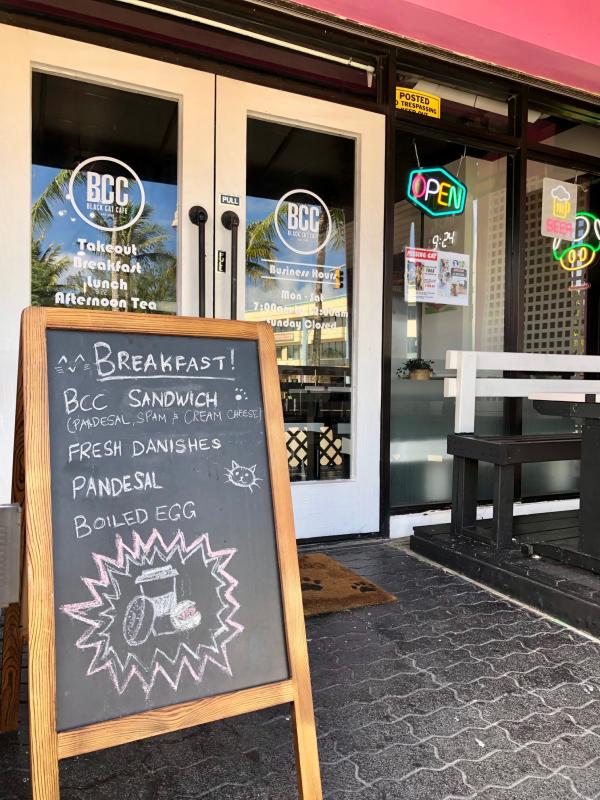 POSTED
NO TRESPASSING
KEEP OUT
BCC
BLACK CAT CAFE
Takeout
Breakfast
Lunch
Afternoon Tea
PULL
BCC
BLACK CAT CAFE
Business Hours
Mon - Sat
Sunday Closed
OPEN
9:24
MISSING CAT
BEER
BREAKFAST!
BCC SANDWICH
(PANDESAL, SPAM & CREAM CHEESE)
FRESH DANISHES
PANDESAL
BOILED EGG